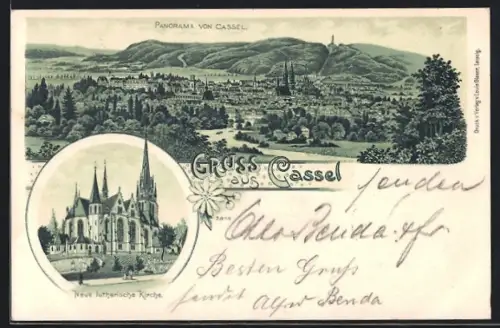 PANORAMA VON CASSEL.
Gruss aus Cassel
Neue lutherische Kirche.
Druck u. Verlag v. Louis Glaser, Leipzig.
senden
Otto Benda & Fr
Besten Gruß
sendet Alfred Benda